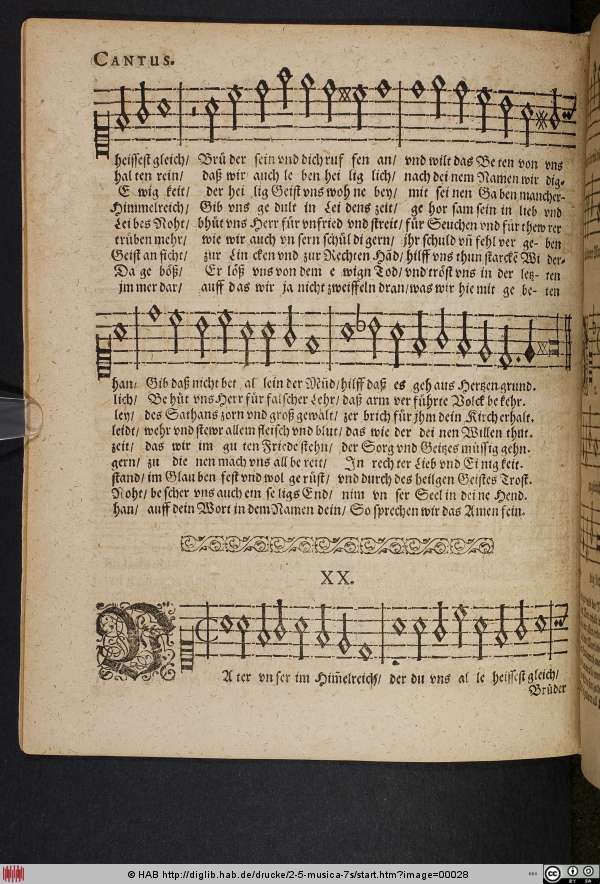 CANTUS.
heissest gleich/ Brü der sein vnd dich ruf fen an/ vnd wilt das Be ten von vns
hal ten rein/ daß wir auch le ben hei lig lich/ nach dei nem Namen wir dig-
E wig keit/ der hei lig Geist vns woh ne bey/ mit sei nen Ga ben mancher-
Himmelreich/ Gib vns ge dult in Lei dens zeit/ ge hor sam sein in lieb vnd
Lei bes Noht/ bhüt vns Herr für vnfried vnd streit/ für Seuchen vnd für thew rer
trüben mehr/ wie wir auch vn sern schül di gern/ jhr schuld vñ fehl ver ge- ben
Geist an ficht/ zur Lin cken vnd zur Rechten Häd/ hilff vns thun starckẽ Wi der-
Da ge böß/ Er löß vns von dem e wign Tod/ vnd tröst vns in der letz- ten
jm mer dar/ auff das wir ja nicht zweiffeln dran/ was wir hie mit ge be- ten
han/ Gib daß nicht bet al lein der Müd/ hilff daß es geh aus Hertzen grund.
lich/ Be hüt vns Herr für falscher Lehr/ daß arm ver führte Volck be kehr.
ley/ des Sathans zorn vnd groß gewalt/ zer brich für jhm dein Kirch erhalt.
leidt/ wehr vnd stewr allem fleisch vnd blut/ das wie der dei nen Willen thut.
zeit/ das wir im gu ten Friede stehn/ der Sorg vnd Geitzes müssig gehn.
gern/ zu die nen mach vns all be reit/ In rech ter Lieb vnd Ei nig keit.
stand/ im Glau ben fest vnd wol ge rüst/ vnd durch des heilgen Geistes Trost.
Noht/ be scher vns auch ein se ligs End/ nim vn ser Seel in dei ne Hend.
han/ auff dein Wort in dem Namen dein/ So sprechen wir das Amen fein.
XX.
V A ter vn ser im Him̃elreich/ der du vns al le heissest gleich/
Brüder
© HAB http://diglib.hab.de/drucke/2-5-musica-7s/start.htm?image=00028